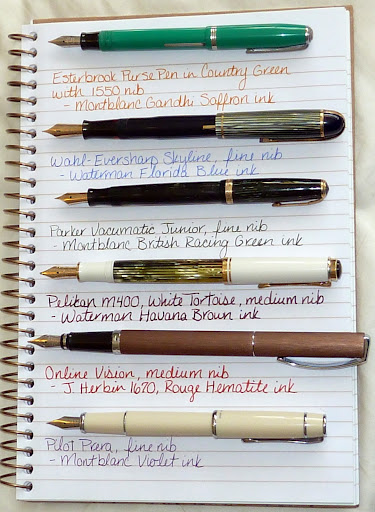 Esterbrook Purse Pen in Country Green
with 1550 nib
- Montblanc Gandhi Saffron ink
Wahl-Eversharp Skyline, fine nib
- Waterman Florida Blue ink
Parker Vacumatic Junior, fine nib
- Montblanc British Racing Green ink
Pelikan M400, White Tortoise, medium nib
- Waterman Havana Brown ink
Online Vision, medium nib
- J. Herbin 1670, Rouge Hematite ink
Pilot Prera, fine nib
- Montblanc Violet ink